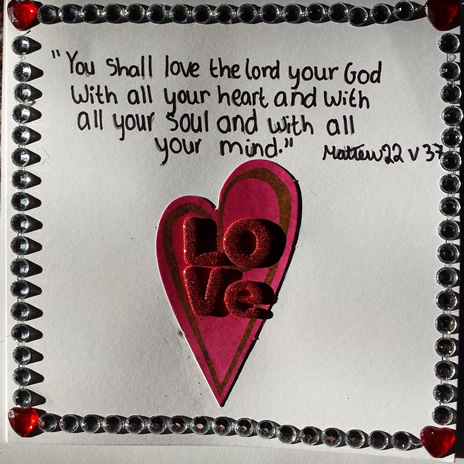 "You shall love the lord your God
With all your heart and with
all your soul and with all
your mind."
Mattew 22 v 37
LO
Ve